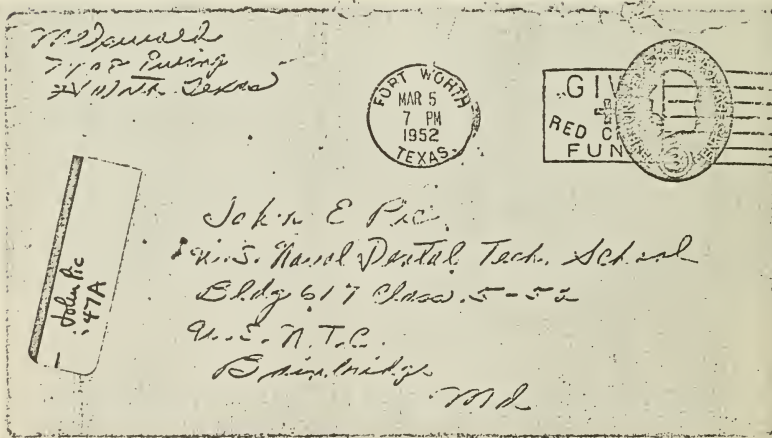 M Oswald
7408 Ewing
Ft Worth Texas
FORT WORTH
MAR 5
7 PM
1952
TEXAS
GIV
RED C
FUN
John Pic
47A
John E Pic
U.S. Naval Dental Tech. School
Bldg 617 Class 5-52
U.S.N.T.C.
Bainbridge
Md